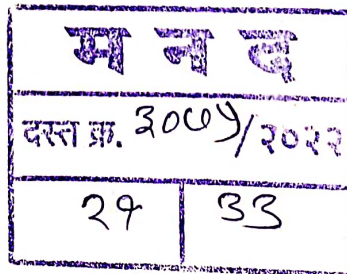 म न द
दस्त क्र. ३०७५/२०२२
२९ ३३